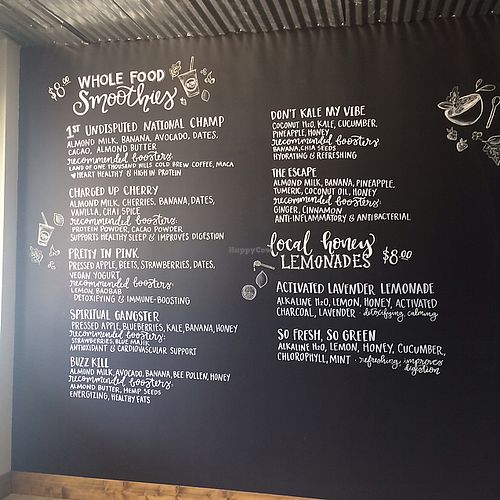 $8.00
WHOLE FOOD
Smoothies
1ST UNDISPUTED NATIONAL CHAMP
ALMOND MILK, BANANA, AVOCADO, DATES,
CACAO, ALMOND BUTTER
recommended boosters:
LAND OF ONE THOUSAND HILLS COLD BREW COFFEE, MACA
♥ HEART HEALTHY & HIGH IN PROTEIN
CHARGED UP CHERRY
ALMOND MILK, CHERRIES, BANANA, DATES,
VANILLA, CHAI SPICE
recommended boosters:
PROTEIN POWDER, CACAO POWDER
SUPPORTS HEALTHY SLEEP & IMPROVES DIGESTION
PRETTY IN PINK
PRESSED APPLE, BEETS, STRAWBERRIES, DATES,
VEGAN YOGURT
recommended boosters:
LEMON, BAOBAB
DETOXIFYING & IMMUNE-BOOSTING
SPIRITUAL GANGSTER
PRESSED APPLE, BLUEBERRIES, KALE, BANANA, HONEY
recommended boosters:
STRAWBERRIES, BLUE MAJIK
ANTIOXIDANT & CARDIOVASCULAR SUPPORT
BUZZ KILL
ALMOND MILK, AVOCADO, BANANA, BEE POLLEN, HONEY
recommended boosters:
ALMOND BUTTER, HEMP SEEDS
ENERGIZING, HEALTHY FATS
DON'T KALE MY VIBE
COCONUT H2O, KALE, CUCUMBER,
PINEAPPLE, HONEY
recommended boosters:
BANANA, CHIA SEEDS
HYDRATING & REFRESHING
THE ESCAPE
ALMOND MILK, BANANA, PINEAPPLE,
TUMERIC, COCONUT OIL, HONEY
recommended boosters:
GINGER, CINNAMON
ANTI-INFLAMMATORY & ANTIBACTERIAL
local honey
LEMONADES $8.00
ACTIVATED LAVENDER LEMONADE
ALKALINE H2O, LEMON, HONEY, ACTIVATED
CHARCOAL, LAVENDER · detoxifying, calming
SO FRESH, SO GREEN
ALKALINE H2O, LEMON, HONEY, CUCUMBER,
CHLOROPHYLL, MINT · refreshing, improves
digestion